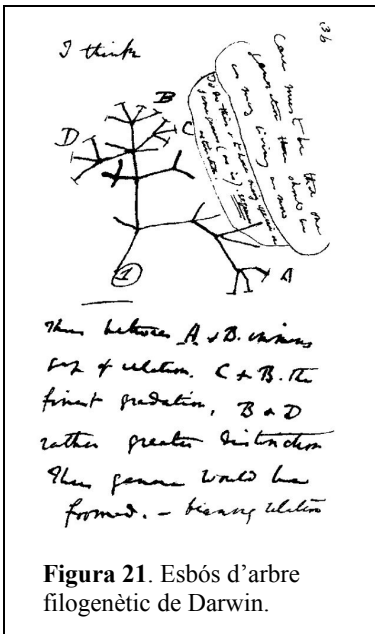 36
I think
Case must be that one
generation then should be
as many living as now
To do this & to have many species in
same genus (as is). requires
extinction
B
C
D
A
1
Thus between A & B. immense
gap of relation. C & B. the
finest gradation, B & D
rather greater distinction
Thus genera would be
formed. — bearing relation
Figura 21. Esbós d'arbre
filogenètic de Darwin.